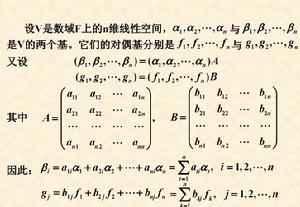 设V是数域F上的n维线性空间，α₁,α₂,⋯,αₙ 与 β₁,β₂,⋯,βₙ
是V的两个基。它们的对偶基分别是 f₁,f₂,⋯,fₙ 与 g₁,g₂,⋯,gₙ
又设 (β₁,β₂,⋯,βₙ)=(α₁,α₂,⋯,αₙ)A
(g₁,g₂,⋯,gₙ)=(f₁,f₂,⋯,fₙ)B
其中 A=(a₁₁ a₁₂ ⋯ a₁ₙ; a₂₁ a₂₂ ⋯ a₂ₙ; ⋯ ⋯ ⋯ ⋯; aₙ₁ aₙ₂ ⋯ aₙₙ), B=(b₁₁ b₁₂ ⋯ b₁ₙ; b₂₁ b₂₂ ⋯ b₂ₙ; ⋯ ⋯ ⋯ ⋯; bₙ₁ bₙ₂ ⋯ bₙₙ)
因此: βᵢ=a₁ᵢα₁+a₂ᵢα₂+⋯+aₙᵢαₙ=∑aₜᵢαₜ, i=1,2,⋯,n
gⱼ=b₁ⱼf₁+b₂ⱼf₂+⋯+bₙⱼfₙ=∑bₖⱼfₖ, j=1,2,⋯,n